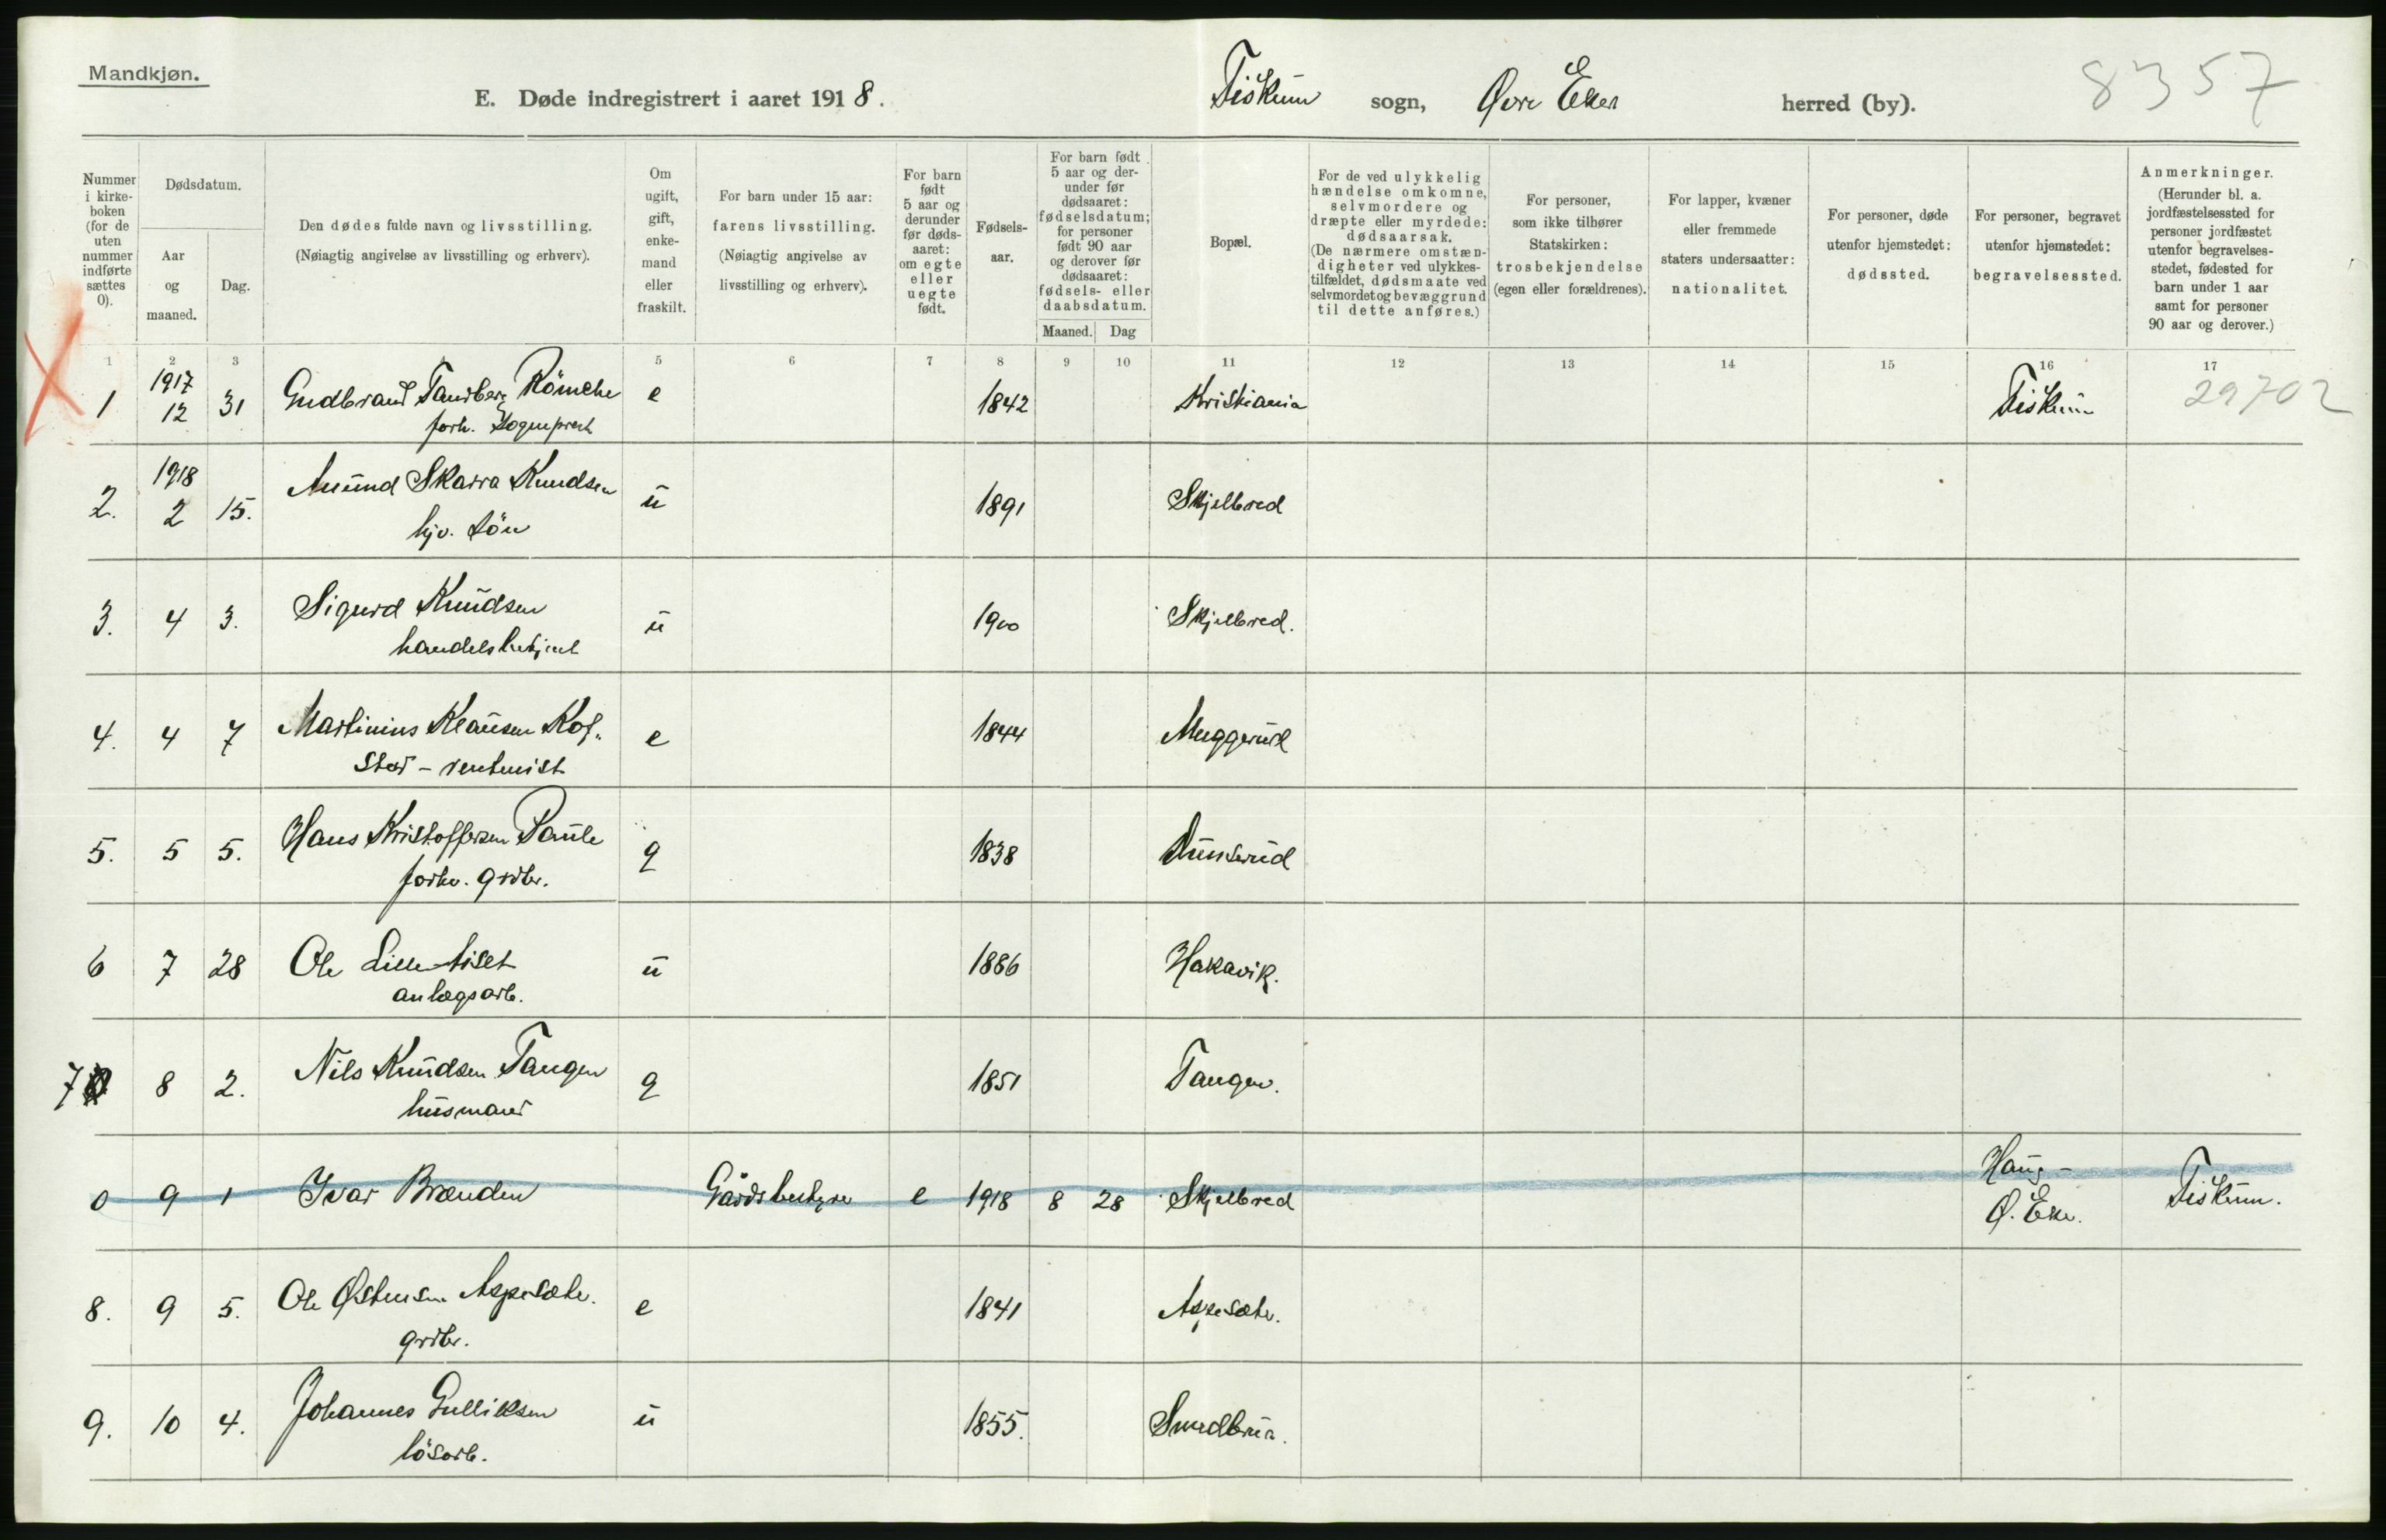 Mandkjøn.
E. Døde indregistrert i aaret 1918.
Fiskum sogn, Øvre Eker herred (by).
8357
Nummer i kirkeboken (for de uten nummer indførte sættes 0).
Dødsdatum.
Aar og maaned.
Dag.
Den dødes fulde navn og livsstilling.
(Nøiagtig angivelse av livsstilling og erhverv).
Om ugift, gift, enkemand eller fraskilt.
For barn under 15 aar: farens livsstilling.
(Nøiagtig angivelse av livsstilling og erhverv).
For barn født 5 aar og derunder før dødsaaret: om egte eller uegte født.
Fødselsaar.
For barn født 5 aar og derunder før dødsaaret: fødselsdatum; for personer født 90 aar og derover før dødsaaret: fødsels- eller daabsdatum.
Maaned. Dag
Bopæl.
For de ved ulykkelig hændelse omkomne, selvmordere og dræpte eller myrdede: dødsaarsak.
(De nærmere omstændigheter ved ulykkestilfældet, dødsmaate ved selvmordet og bevæggrund til dette anføres.)
For personer, som ikke tilhører Statskirken: trosbekjendelse (egen eller forældrenes).
For lapper, kvæner eller fremmede staters undersaatter: nationalitet.
For personer, døde utenfor hjemstedet: dødssted.
For personer, begravet utenfor hjemstedet: begravelsessted.
Anmerkninger.
(Herunder bl. a. jordfæstelsessted for personer jordfæstet utenfor begravelsesstedet, fødested for barn under 1 aar samt for personer 90 aar og derover.)
1 2 3 5 6 7 8 9 10 11 12 13 14 15 16 17
1 1917 12 31 Gudbrand Tandberg Römcke e 1842 Kristiania Fiskum 29702
forh. Sogneprest
2. 1918 2 15. Amund Skarra Knudsen ü 1891 Skjelbred
hjv. sön
3. 4 3. Sigurd Knudsen ü 1900 Skjelbred.
handelsbetjent
4. 4 7 Martinius Klausen Kof- e 1844 Muggerud
stad - rentenist
5. 5 5. Hans Kristoffersen Paule g 1838 Dunserud
forhv. grdbr.
6 7 28 Ole ü 1886 Hakavik.
anlægsarb.
7 8 2. Nils Knudsen Tangen g 1851 Tangen.
husmand
0 9 1 Ivar Brænden Gårdsbestyrer e 1918 8 28 Skjelbred Haug - Ø. Eker. Fiskum.
8. 9 5. Ole Østensen Aspesæter. e 1841 Aspesæter.
grdbr.
9. 10 4. Johannes Gulliksen ü 1855. Smedbrua.
lösarb.